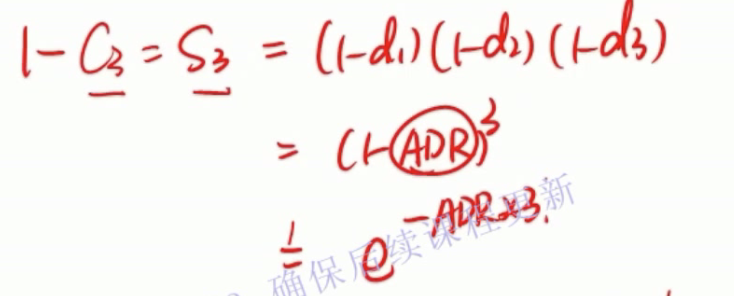 1 - C₃ = S₃ = (1-d₁)(1-d₂)(1-d₃)
= (1-ADR)³
≐ e^(-ADR×3)
确保后续课程更新